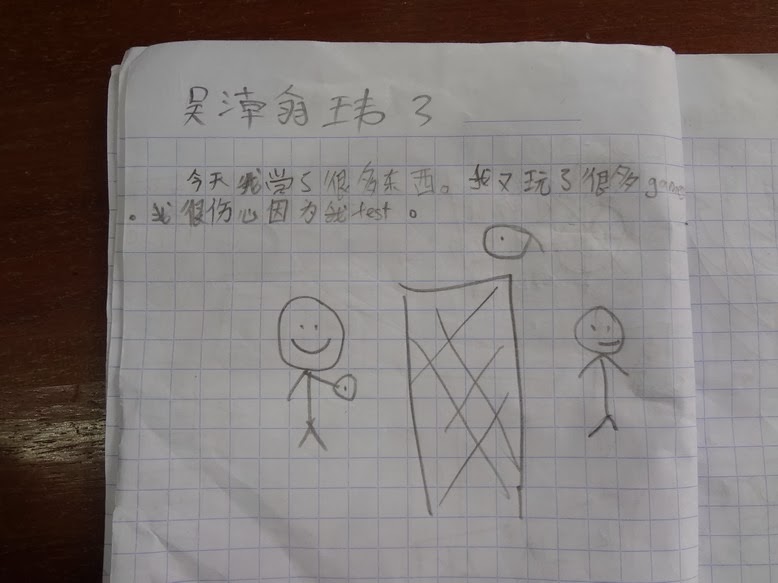 吴 3
今天我学了很多东西。我又玩了很多game
。我很伤心因为我test。